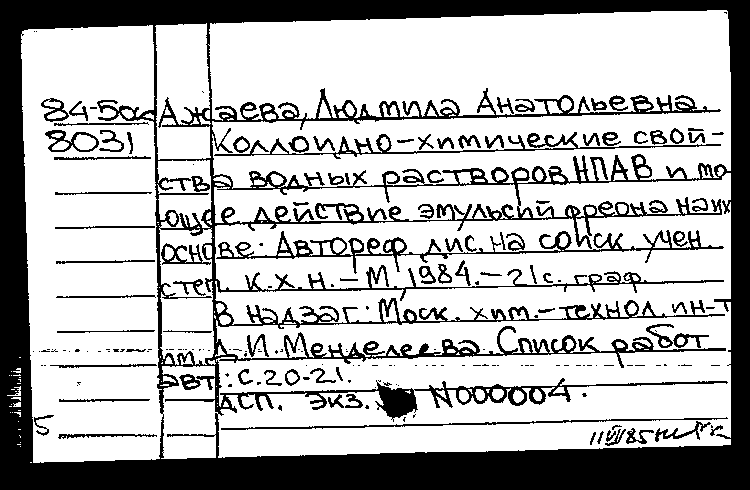 84-5дсп Ажаева, Людмила Анатольевна.
8031 Коллоидно-химические свой-
ства водных растворов НПАВ и мо-
ющее действие эмульсий фреона на их
основе: Автореф. дис. на соиск. учен.
степ. к.х.н. - М., 1984. - 21с., граф.
В надзаг.: Моск. хим.-технол. ин-т
им. Д.И. Менделеева. Список работ
авт.: с.20-21.
ДСП. экз. N000004.
5